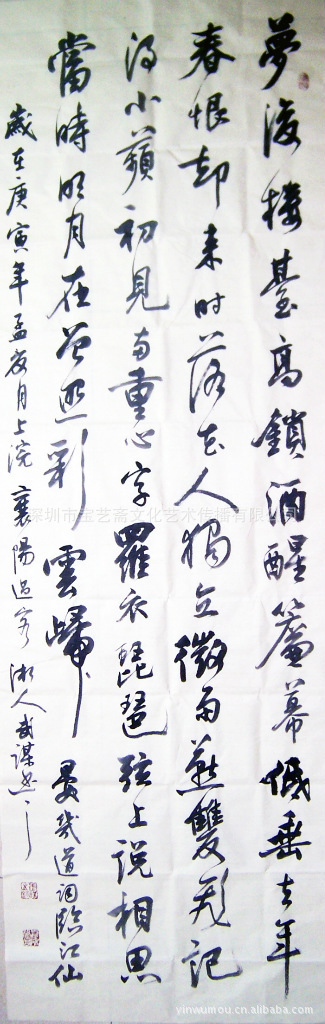 夢後樓臺高鎖酒醒簾幕低垂去年
春恨却来时落花人獨立微雨燕雙飛記
得小蘋初見两重心字羅衣琵琶弦上说相思
當時明月在曾照彩雲歸 晏幾道詞臨江仙
歲在庚寅年孟夏月上浣 襄陽過客 湘人武謀书
深圳市宝艺斋文化艺术传播有限公
yinwumou.cn.alibaba.com